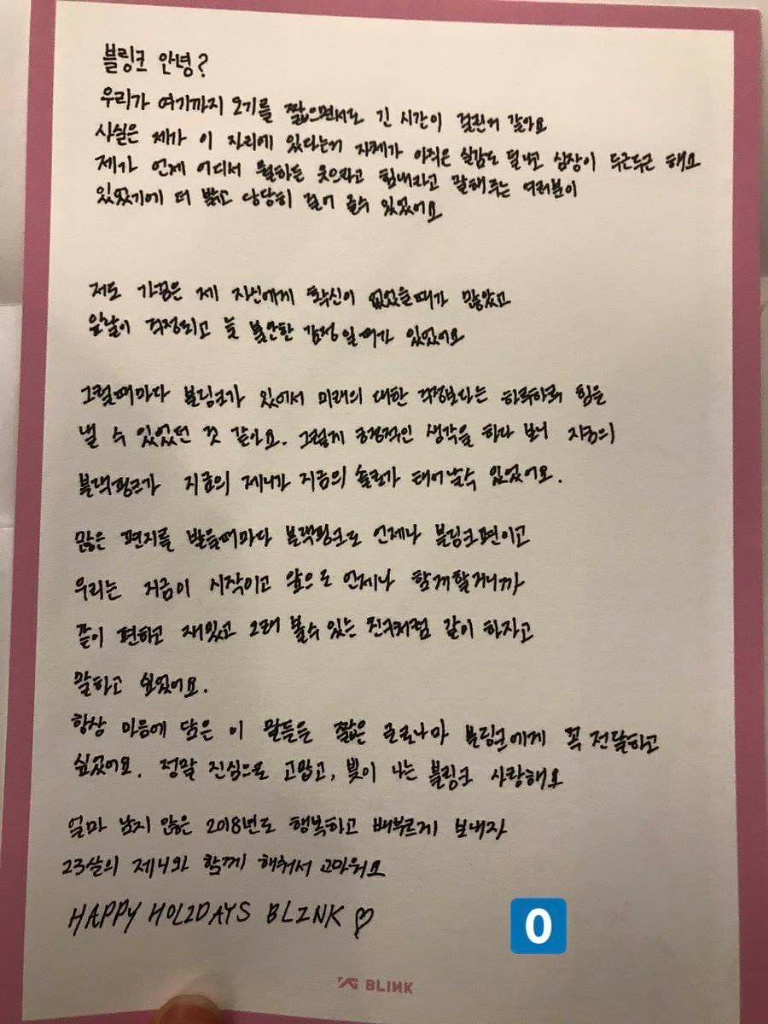 블링크 안녕?
우리가 여기까지 오기를 짧으면서도 긴 시간이 걸린거 같아요
사실은 제가 이 자리에 있다는거 자체가 아직은 실감도 덜나고 심장이 두근두근 해요
제가 언제 어디서 뭘하든 웃으라고 힘내라고 말해주는 여러분이
있었기에 더 밝고 당당히 걸어 올수 있었어요
저도 가끔은 제 자신에게 확신이 없었을때가 많았고
앞날이 걱정되고 늘 불안한 감정일때가 있었어요
그럴때마다 블링크가 있어서 미래의 대한 걱정보다는 하루하루 힘을
낼 수 있었던 것 같아요. 그렇게 긍정적인 생각을 하다 보니 지금의
블랙핑크가 지금의 제니가 지금의 솔로가 태어날수 있었어요.
많은 편지를 받을때마다 블랙핑크도 언제나 블링크편이고
우리는 지금이 시작이고 앞으로 언제나 함께할거니까
같이 편하고 재밌고 오래 볼수있는 친구처럼 같이 하자고
말하고 싶었어요.
항상 마음에 담은 이 말들을 짧은 글로나마 블링크에게 꼭 전달하고
싶었어요. 정말 진심으로 고맙고, 빛이 나는 블링크 사랑해요
얼마 남지 않은 2018년도 행복하고 배부르게 보내자
23살의 제니와 함께 해줘서 고마워요
HAPPY HOLIDAYS BLINK ♡
0
YG BLINK